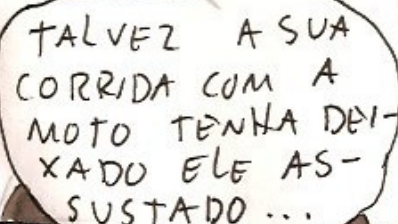 TALVEZ A SUA
CORRIDA COM A
MOTO TENHA DEI-
XADO ELE AS-
SUSTADO...